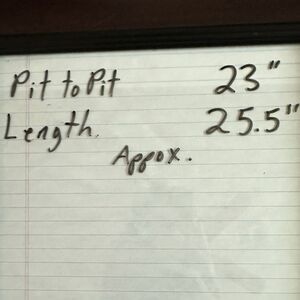 Pit to Pit 23"
Length. 25.5"
Appox.